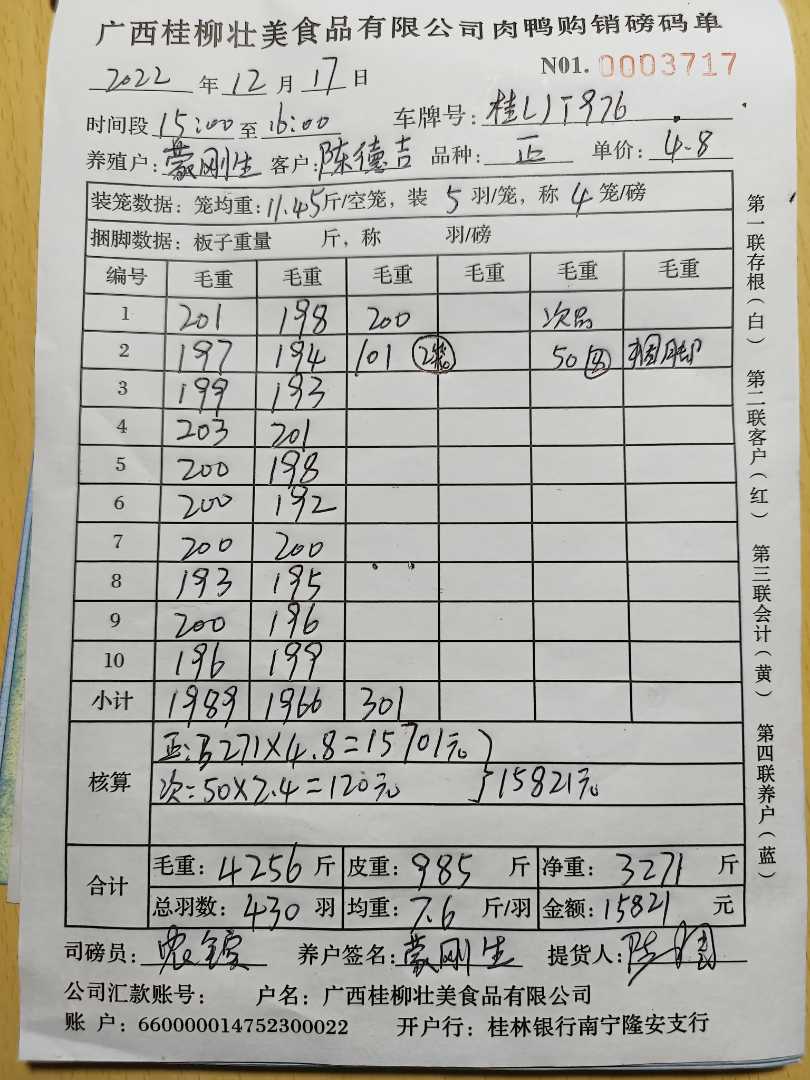 广西桂柳壮美食品有限公司肉鸭购销磅码单
2022 年 12 月 17 日 N01. 0003717
时间段 15:00 至 16:00 车牌号: 桂LJT976
养殖户: 蒙刚生 客户: 陈德吉 品种: 正 单价: 4.8
装笼数据: 笼均重: 11.45 斤/空笼, 装 5 羽/笼, 称 4 笼/磅
捆脚数据: 板子重量 斤, 称 羽/磅
编号 毛重 毛重 毛重 毛重 毛重 毛重
1 201 198 200 次品
2 197 194 101 2笼 50 捆脚
3 199 193
4 203 201
5 200 198
6 200 192
7 200 200
8 193 195
9 200 196
10 196 199
小计 1989 1966 301
核算 正:3271×4.8=15701元
次:50×2.4=120元 }15821元
合计 毛重: 4256 斤 皮重: 985 斤 净重: 3271 斤
总羽数: 430 羽 均重: 7.6 斤/羽 金额: 15821 元
司磅员: 养户签名: 蒙刚生 提货人:
公司汇款账号: 户名: 广西桂柳壮美食品有限公司
账 户: 660000014752300022 开户行: 桂林银行南宁隆安支行
第一联存根(白) 第二联客户(红) 第三联会计(黄) 第四联养户(蓝)